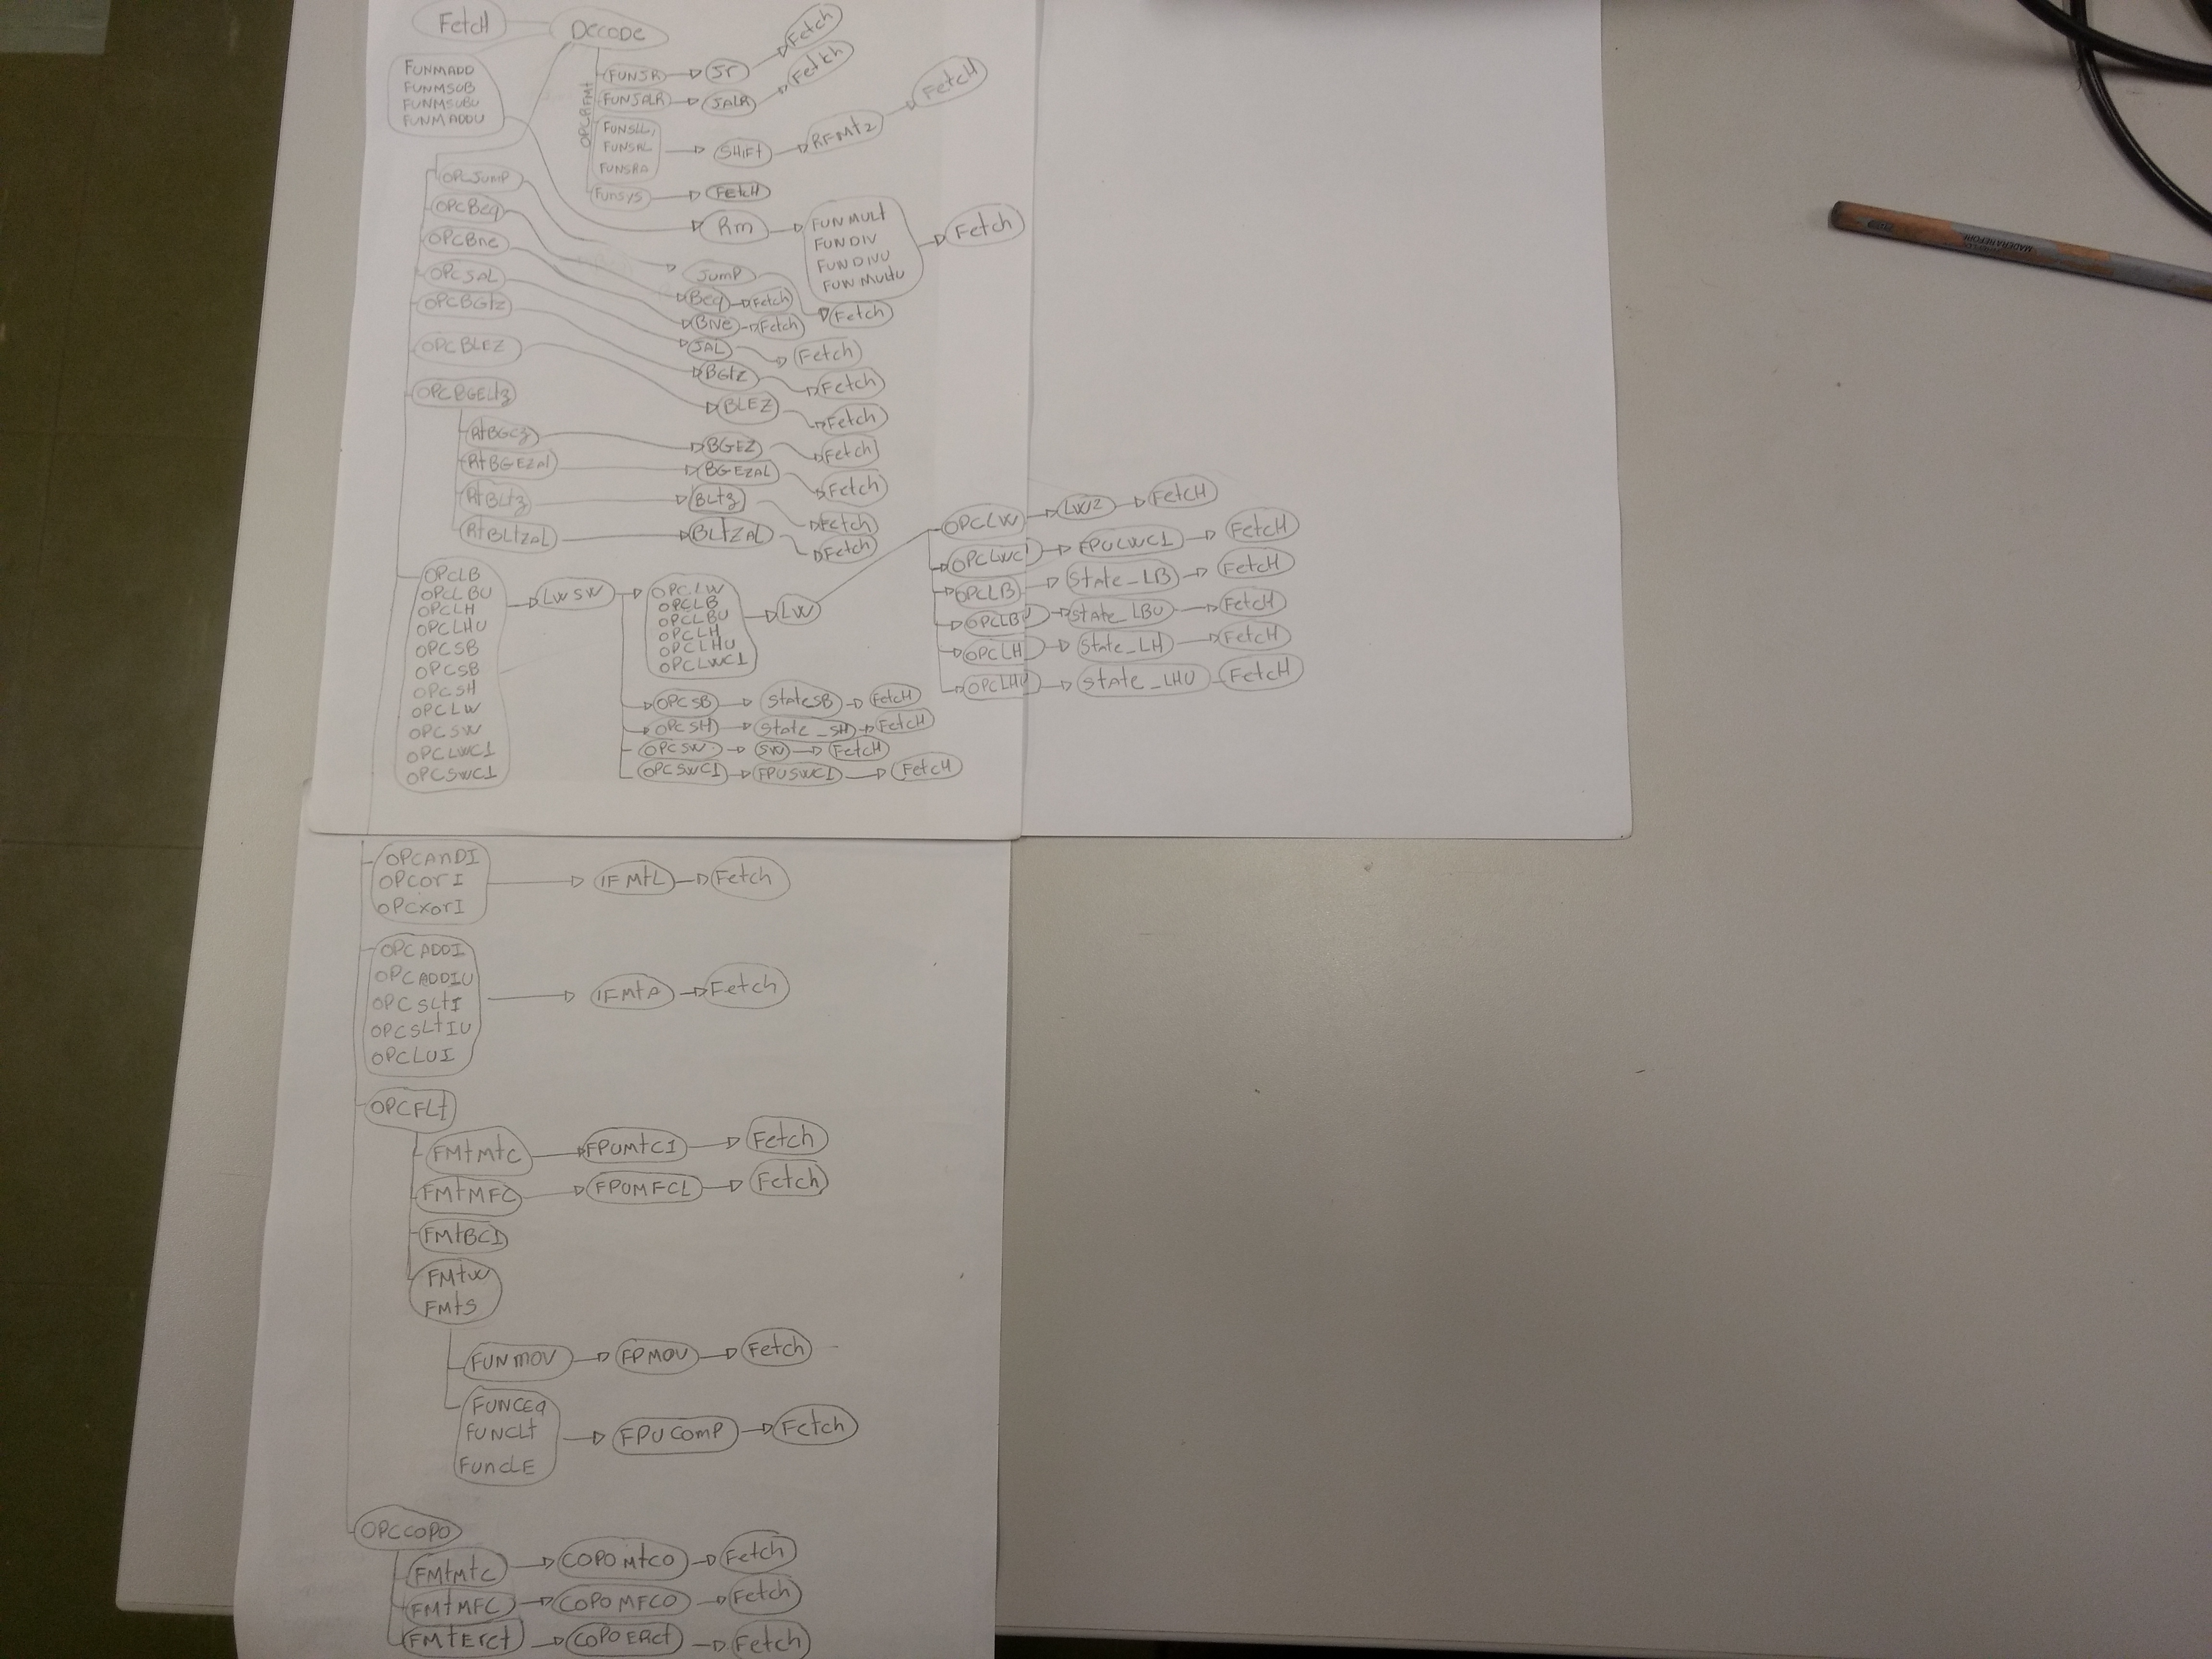 FetcH
DecoDe
Fetch
FUNMADD
FUNMSUB
FUNMSUBU
FUNMADDU
OPCRFMt
FUNJR
Jr
Fetch
FUNJALR
JALR
FetcH
FUNSLL,
FUNSRL
FUNSRA
SHIFt
RFMt2
Funsys
FEtcH
Rm
FUNMULt
FUNDIV
FUNDIVU
FUNMULtU
Fetch
OPCJUMP
JumP
Fetch
OPCBeq
Beq
Fetch
OPCBne
BNe
Fetch
OPCJAL
JAL
Fetch
OPCBGtz
BGtz
Fetch
OPCBLEZ
BLEZ
Fetch
OPCBGELtz
RtBGEz
BGEZ
Fetch
RtBGEZAl
BGEZAL
Fetch
RtBLtz
BLtz
Fetch
RtBLtZAL
BLtZAL
Fetch
OPCLB
OPCLBU
OPCLH
OPCLHU
OPCSB
OPCSB
OPCSH
OPCLW
OPCSW
OPCLWC1
OPCSWC1
LWSW
OPCLW
OPCLB
OPCLBU
OPCLH
OPCLHU
OPCLWC1
LW
OPCLW
LW2
FetcH
OPCLWC1
FPULWC1
FetcH
OPCLB
State_LB
FetcH
OPCLBU
State_LBU
FetcH
OPCLH
State_LH
FetcH
OPCLHU
State_LHU
FetcH
OPCSB
StateSB
FetcH
OPCSH
State_SH
FetcH
OPCSW
SW
FetcH
OPCSWC1
FPUSWC1
FetcH
OPCAnDI
OPCorI
OPCxorI
IFMtL
Fetch
OPCADDI
OPCADDIU
OPCSLtI
OPCSLtIU
OPCLUI
IFMtA
Fetch
OPCFLt
FMtMtC
FPUMtC1
Fetch
FMtMFC
FPUMFCL
Fetch
FMtBC1
FMtW
FMtS
FUNMOV
FPMOV
Fetch
FUNCEq
FUNCLt
FUNCLE
FPUComP
Fetch
OPCCOPO
FMtMtC
COPOMtCO
Fetch
FMtMFC
COPOMFCO
Fetch
FMtErct
COPOERct
Fetch